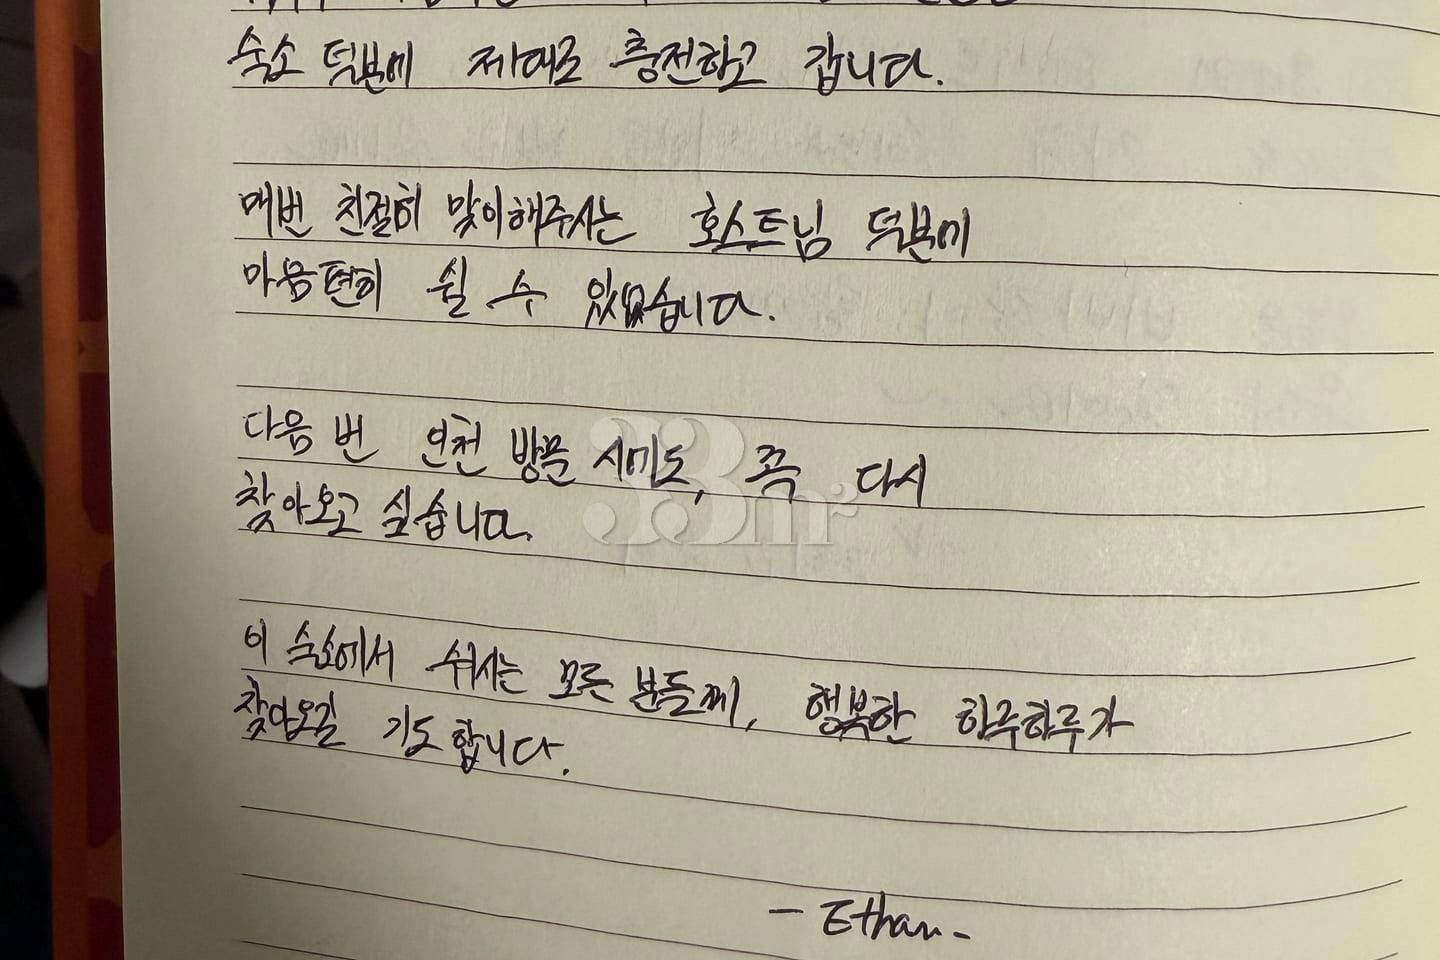 숙소 덕분에 제대로 충전하고 갑니다.
매번 친절히 맞이해주시는 호스트님 덕분에
마음편히 쉴 수 있었습니다.
다음 번 인천 방문 시에도, 꼭 다시
찾아오고 싶습니다.
이 숙소에서 쉬시는 모든 분들께, 행복한 하루하루가
찾아오길 기도합니다.
- Ethan -
33m²